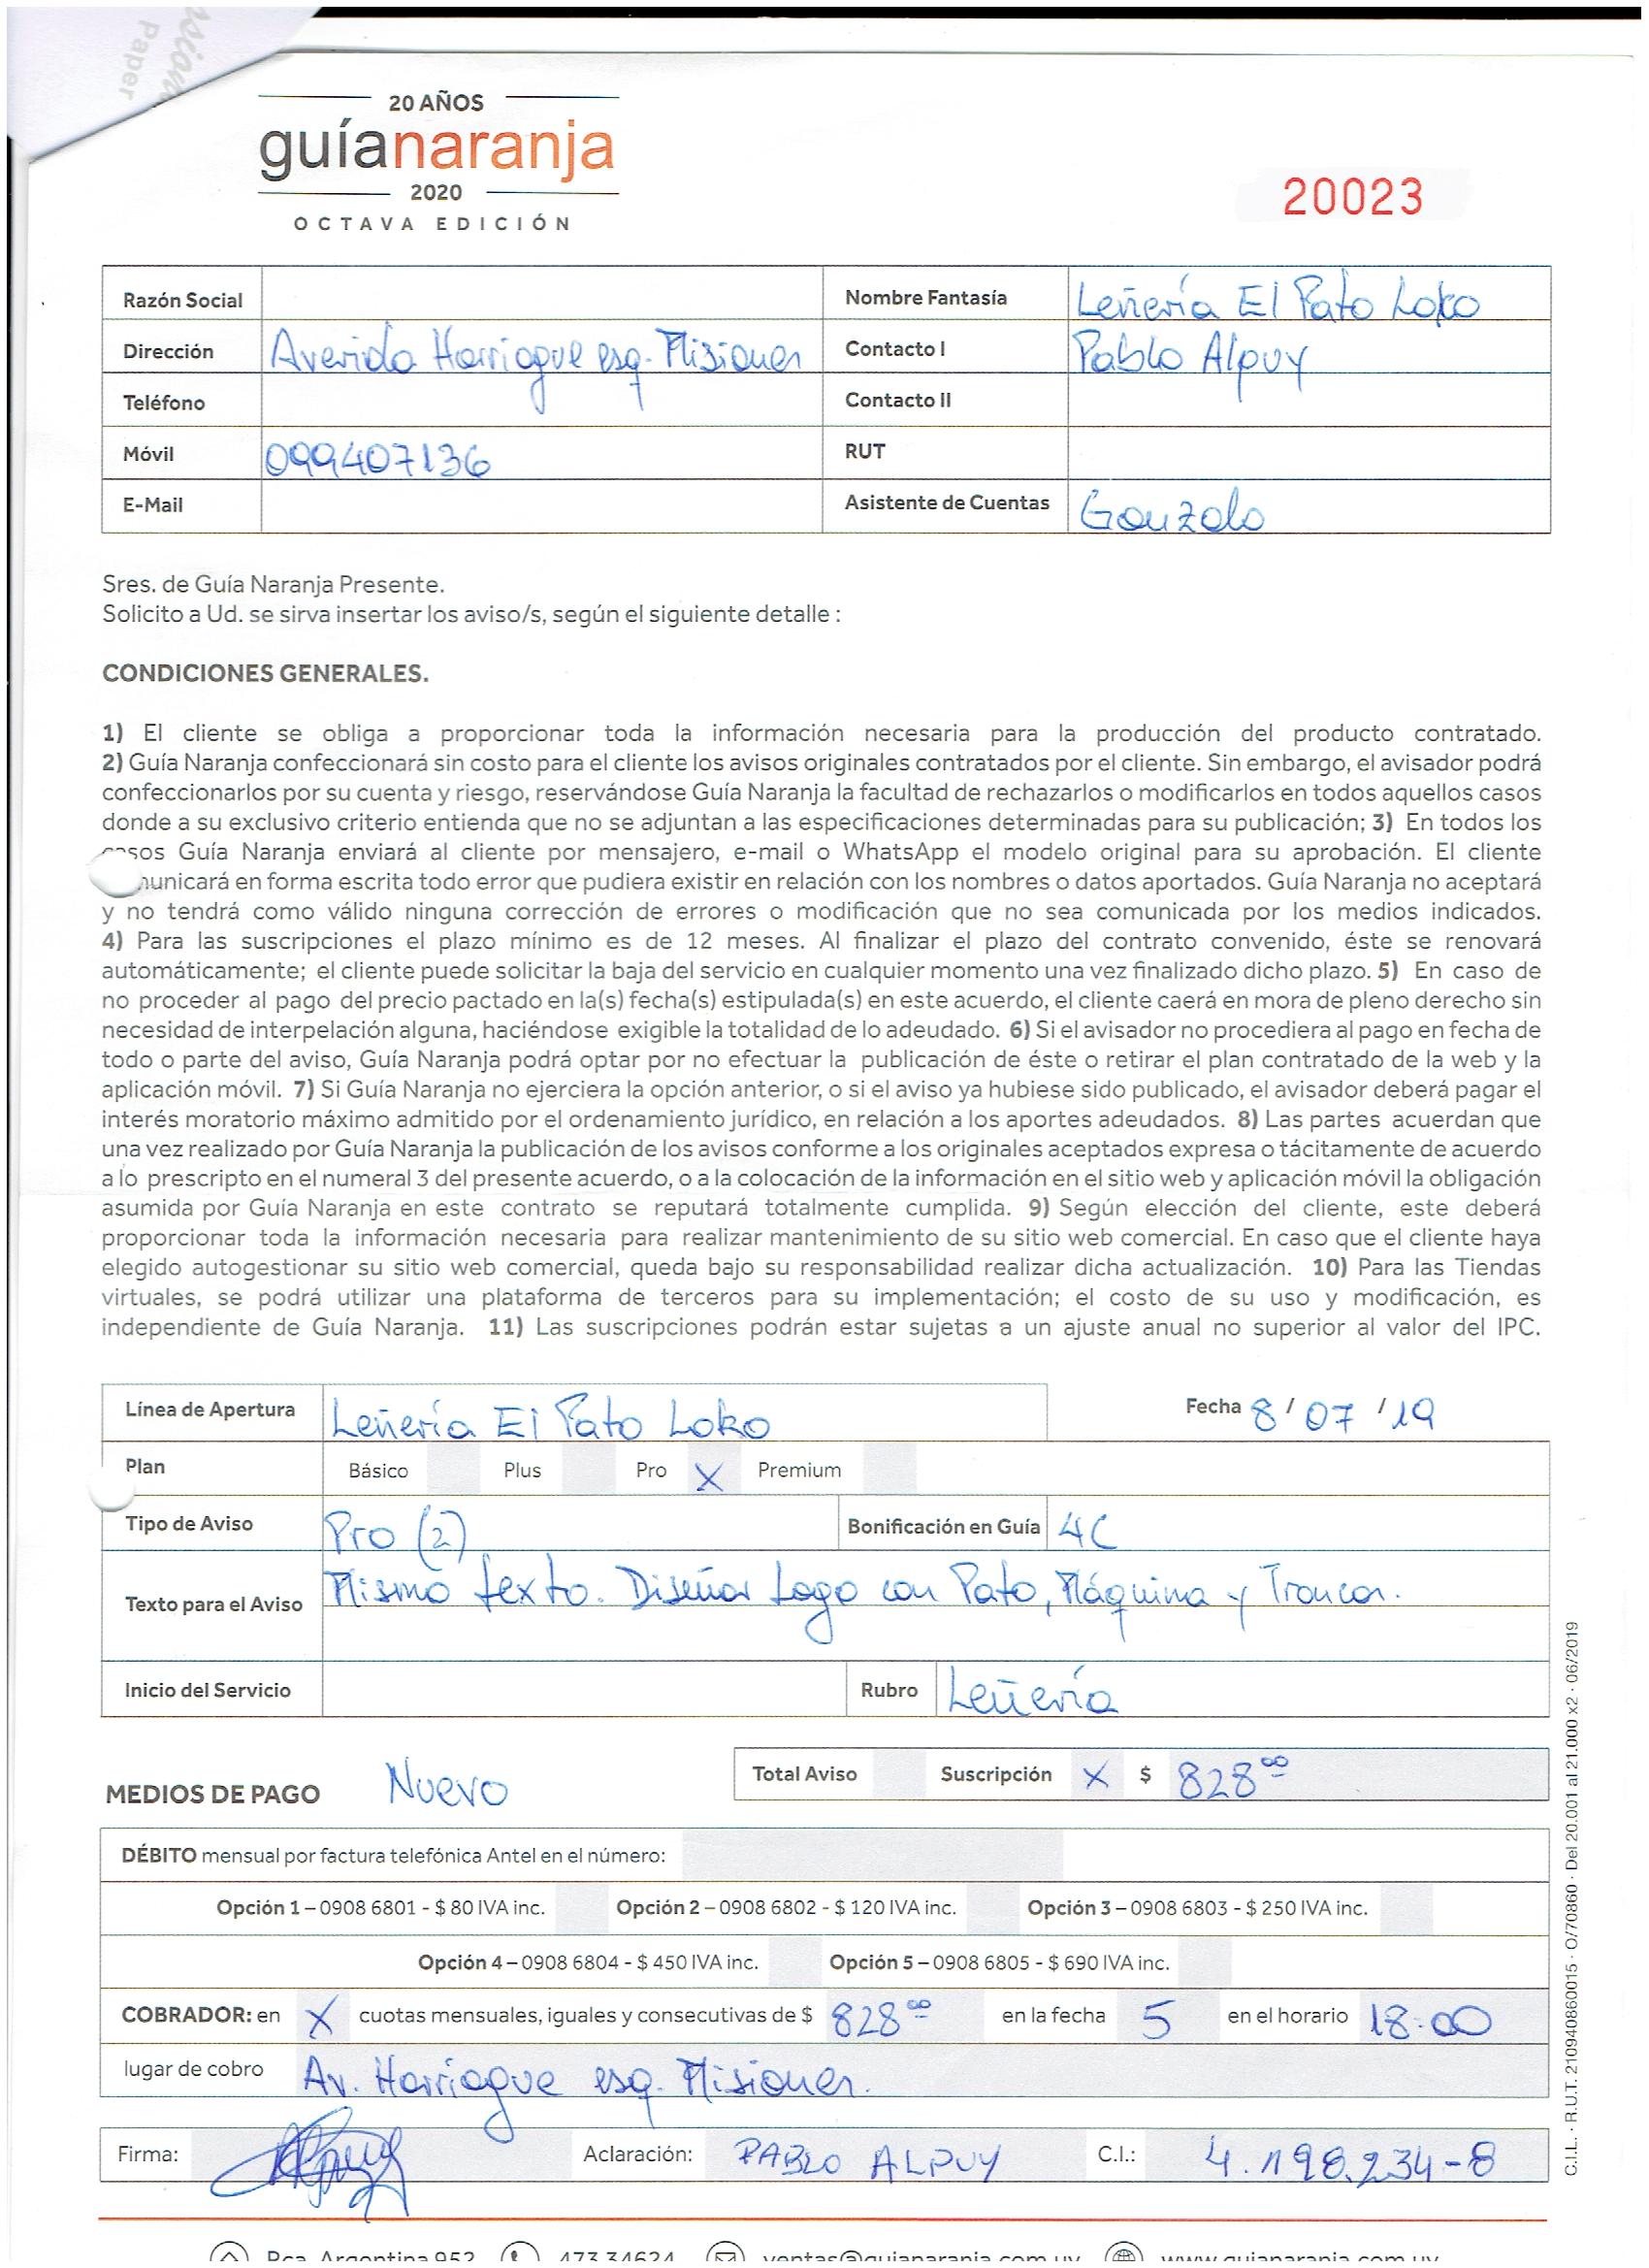 Paper
20 AÑOS
guíanaranja
2020
OCTAVA EDICIÓN
20023
Razón Social
Nombre Fantasía Leñería El Pato Loko
Dirección Avenida Harriague esq. Misiones Contacto I Pablo Alpuy
Teléfono Contacto II
Móvil 099407136 RUT
E-Mail Asistente de Cuentas Gonzalo
Sres. de Guía Naranja Presente.
Solicito a Ud. se sirva insertar los aviso/s, según el siguiente detalle :
CONDICIONES GENERALES.
1) El cliente se obliga a proporcionar toda la información necesaria para la producción del producto contratado.
2) Guía Naranja confeccionará sin costo para el cliente los avisos originales contratados por el cliente. Sin embargo, el avisador podrá
confeccionarlos por su cuenta y riesgo, reservándose Guía Naranja la facultad de rechazarlos o modificarlos en todos aquellos casos
donde a su exclusivo criterio entienda que no se adjuntan a las especificaciones determinadas para su publicación; 3) En todos los
casos Guía Naranja enviará al cliente por mensajero, e-mail o WhatsApp el modelo original para su aprobación. El cliente
municará en forma escrita todo error que pudiera existir en relación con los nombres o datos aportados. Guía Naranja no aceptará
y no tendrá como válido ninguna corrección de errores o modificación que no sea comunicada por los medios indicados.
4) Para las suscripciones el plazo mínimo es de 12 meses. Al finalizar el plazo del contrato convenido, éste se renovará
automáticamente; el cliente puede solicitar la baja del servicio en cualquier momento una vez finalizado dicho plazo. 5) En caso de
no proceder al pago del precio pactado en la(s) fecha(s) estipulada(s) en este acuerdo, el cliente caerá en mora de pleno derecho sin
necesidad de interpelación alguna, haciéndose exigible la totalidad de lo adeudado. 6) Si el avisador no procediera al pago en fecha de
todo o parte del aviso, Guía Naranja podrá optar por no efectuar la publicación de éste o retirar el plan contratado de la web y la
aplicación móvil. 7) Si Guía Naranja no ejerciera la opción anterior, o si el aviso ya hubiese sido publicado, el avisador deberá pagar el
interés moratorio máximo admitido por el ordenamiento jurídico, en relación a los aportes adeudados. 8) Las partes acuerdan que
una vez realizado por Guía Naranja la publicación de los avisos conforme a los originales aceptados expresa o tácitamente de acuerdo
a lo prescripto en el numeral 3 del presente acuerdo, o a la colocación de la información en el sitio web y aplicación móvil la obligación
asumida por Guía Naranja en este contrato se reputará totalmente cumplida. 9) Según elección del cliente, este deberá
proporcionar toda la información necesaria para realizar mantenimiento de su sitio web comercial. En caso que el cliente haya
elegido autogestionar su sitio web comercial, queda bajo su responsabilidad realizar dicha actualización. 10) Para las Tiendas
virtuales, se podrá utilizar una plataforma de terceros para su implementación; el costo de su uso y modificación, es
independiente de Guía Naranja. 11) Las suscripciones podrán estar sujetas a un ajuste anual no superior al valor del IPC.
Línea de Apertura Leñería El Pato Loko Fecha 8 / 07 / 19
Plan Básico Plus Pro X Premium
Tipo de Aviso Pro (2) Bonificación en Guía 4C
Texto para el Aviso Mismo texto. Diseñar Logo con Pato, Máquina y Troncos.
Inicio del Servicio Rubro Leñería
MEDIOS DE PAGO Nuevo Total Aviso Suscripción X $ 828⁰⁰
DÉBITO mensual por factura telefónica Antel en el número:
Opción 1 – 0908 6801 - $ 80 IVA inc. Opción 2 – 0908 6802 - $ 120 IVA inc. Opción 3 – 0908 6803 - $ 250 IVA inc.
Opción 4 – 0908 6804 - $ 450 IVA inc. Opción 5 – 0908 6805 - $ 690 IVA inc.
COBRADOR: en X cuotas mensuales, iguales y consecutivas de $ 828⁰⁰ en la fecha 5 en el horario 18:00
lugar de cobro Av. Harriague esq. Misiones.
Firma: Aclaración: PABLO ALPUY C.I.: 4.198.234-8
C.I.L. · R.U.T. 210940860015 · O/70860 · Del 20.001 al 21.000 x2 · 06/2019
Pca. Argentina 952 473 34624 ventas@guianaranja.com.uy www.guianaranja.com.uy